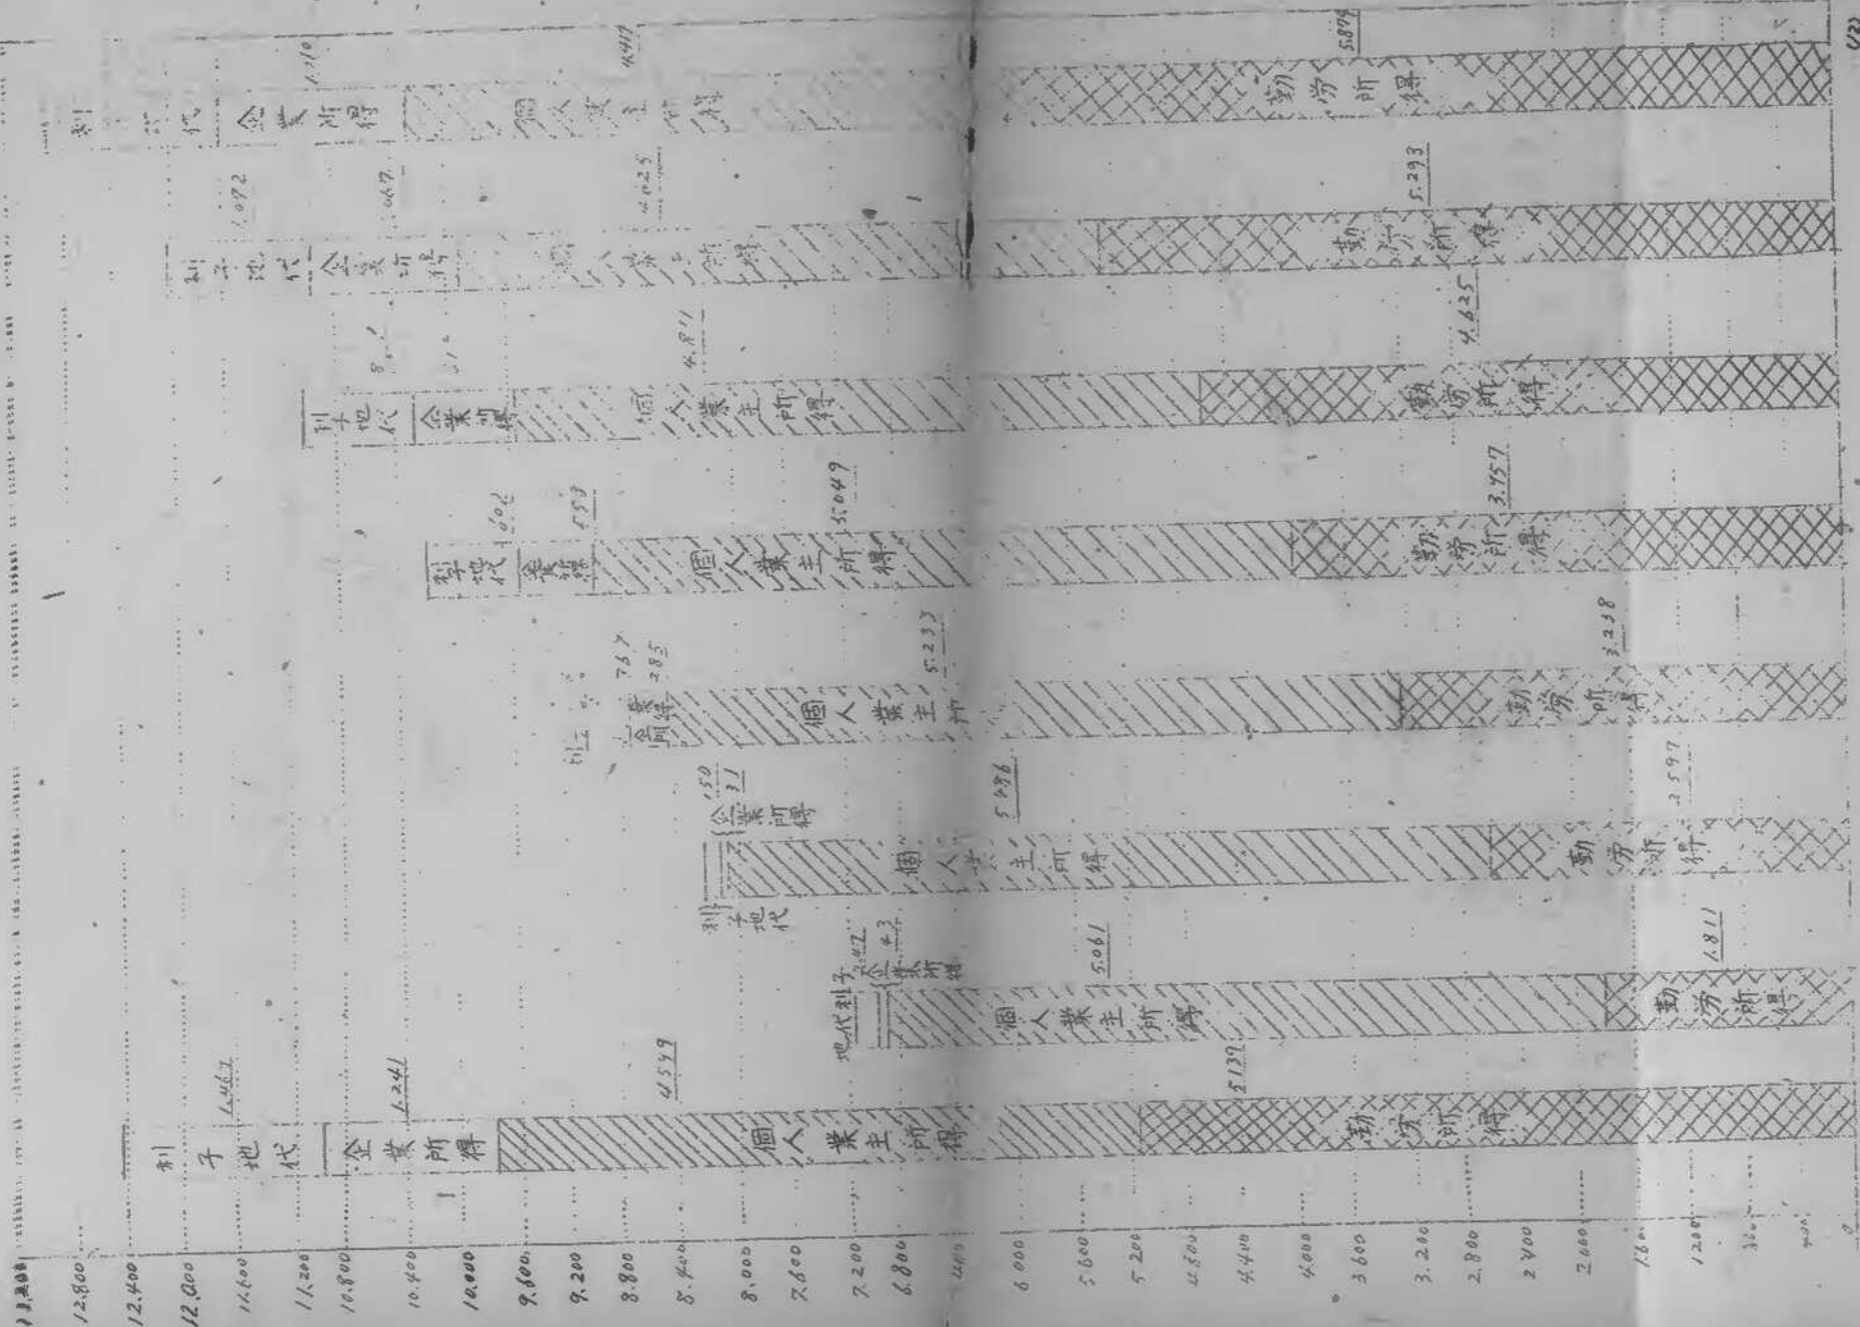 13,200
12,800
12,400
12,000
11,600
11,200
10,800
10,400
10,000
9,600
9,200
8,800
8,400
8,000
7,600
7,200
6,800
6,000
5,600
5,200
4,800
4,400
4,000
3,600
3,200
2,800
2,400
2,000
1,600
1,200
400
0
利子地代
企業所得 1,241
個人業主所得 4,549
勤労所得 5,139
地代利子
企業所得 43
個人業主所得 5,061
勤労所得 1,811
利子地代 150
企業所得 31
個人業主所得 5,486
勤労所得 2,597
企業所得 285
個人業主所 5,233
勤労所得 3,238
利子地代
企業所得 553
個人業主所得 5,049
勤労所得 3,757
利子地代
企業所得
個人業主所得 4,811
勤労所得 4,625
利子地代 1,092
企業所得
業主所得 4,025
勤労所得 5,293
代
企業所得 1,210
個人業主所得 4,417
勤労所得 5,874
(2)